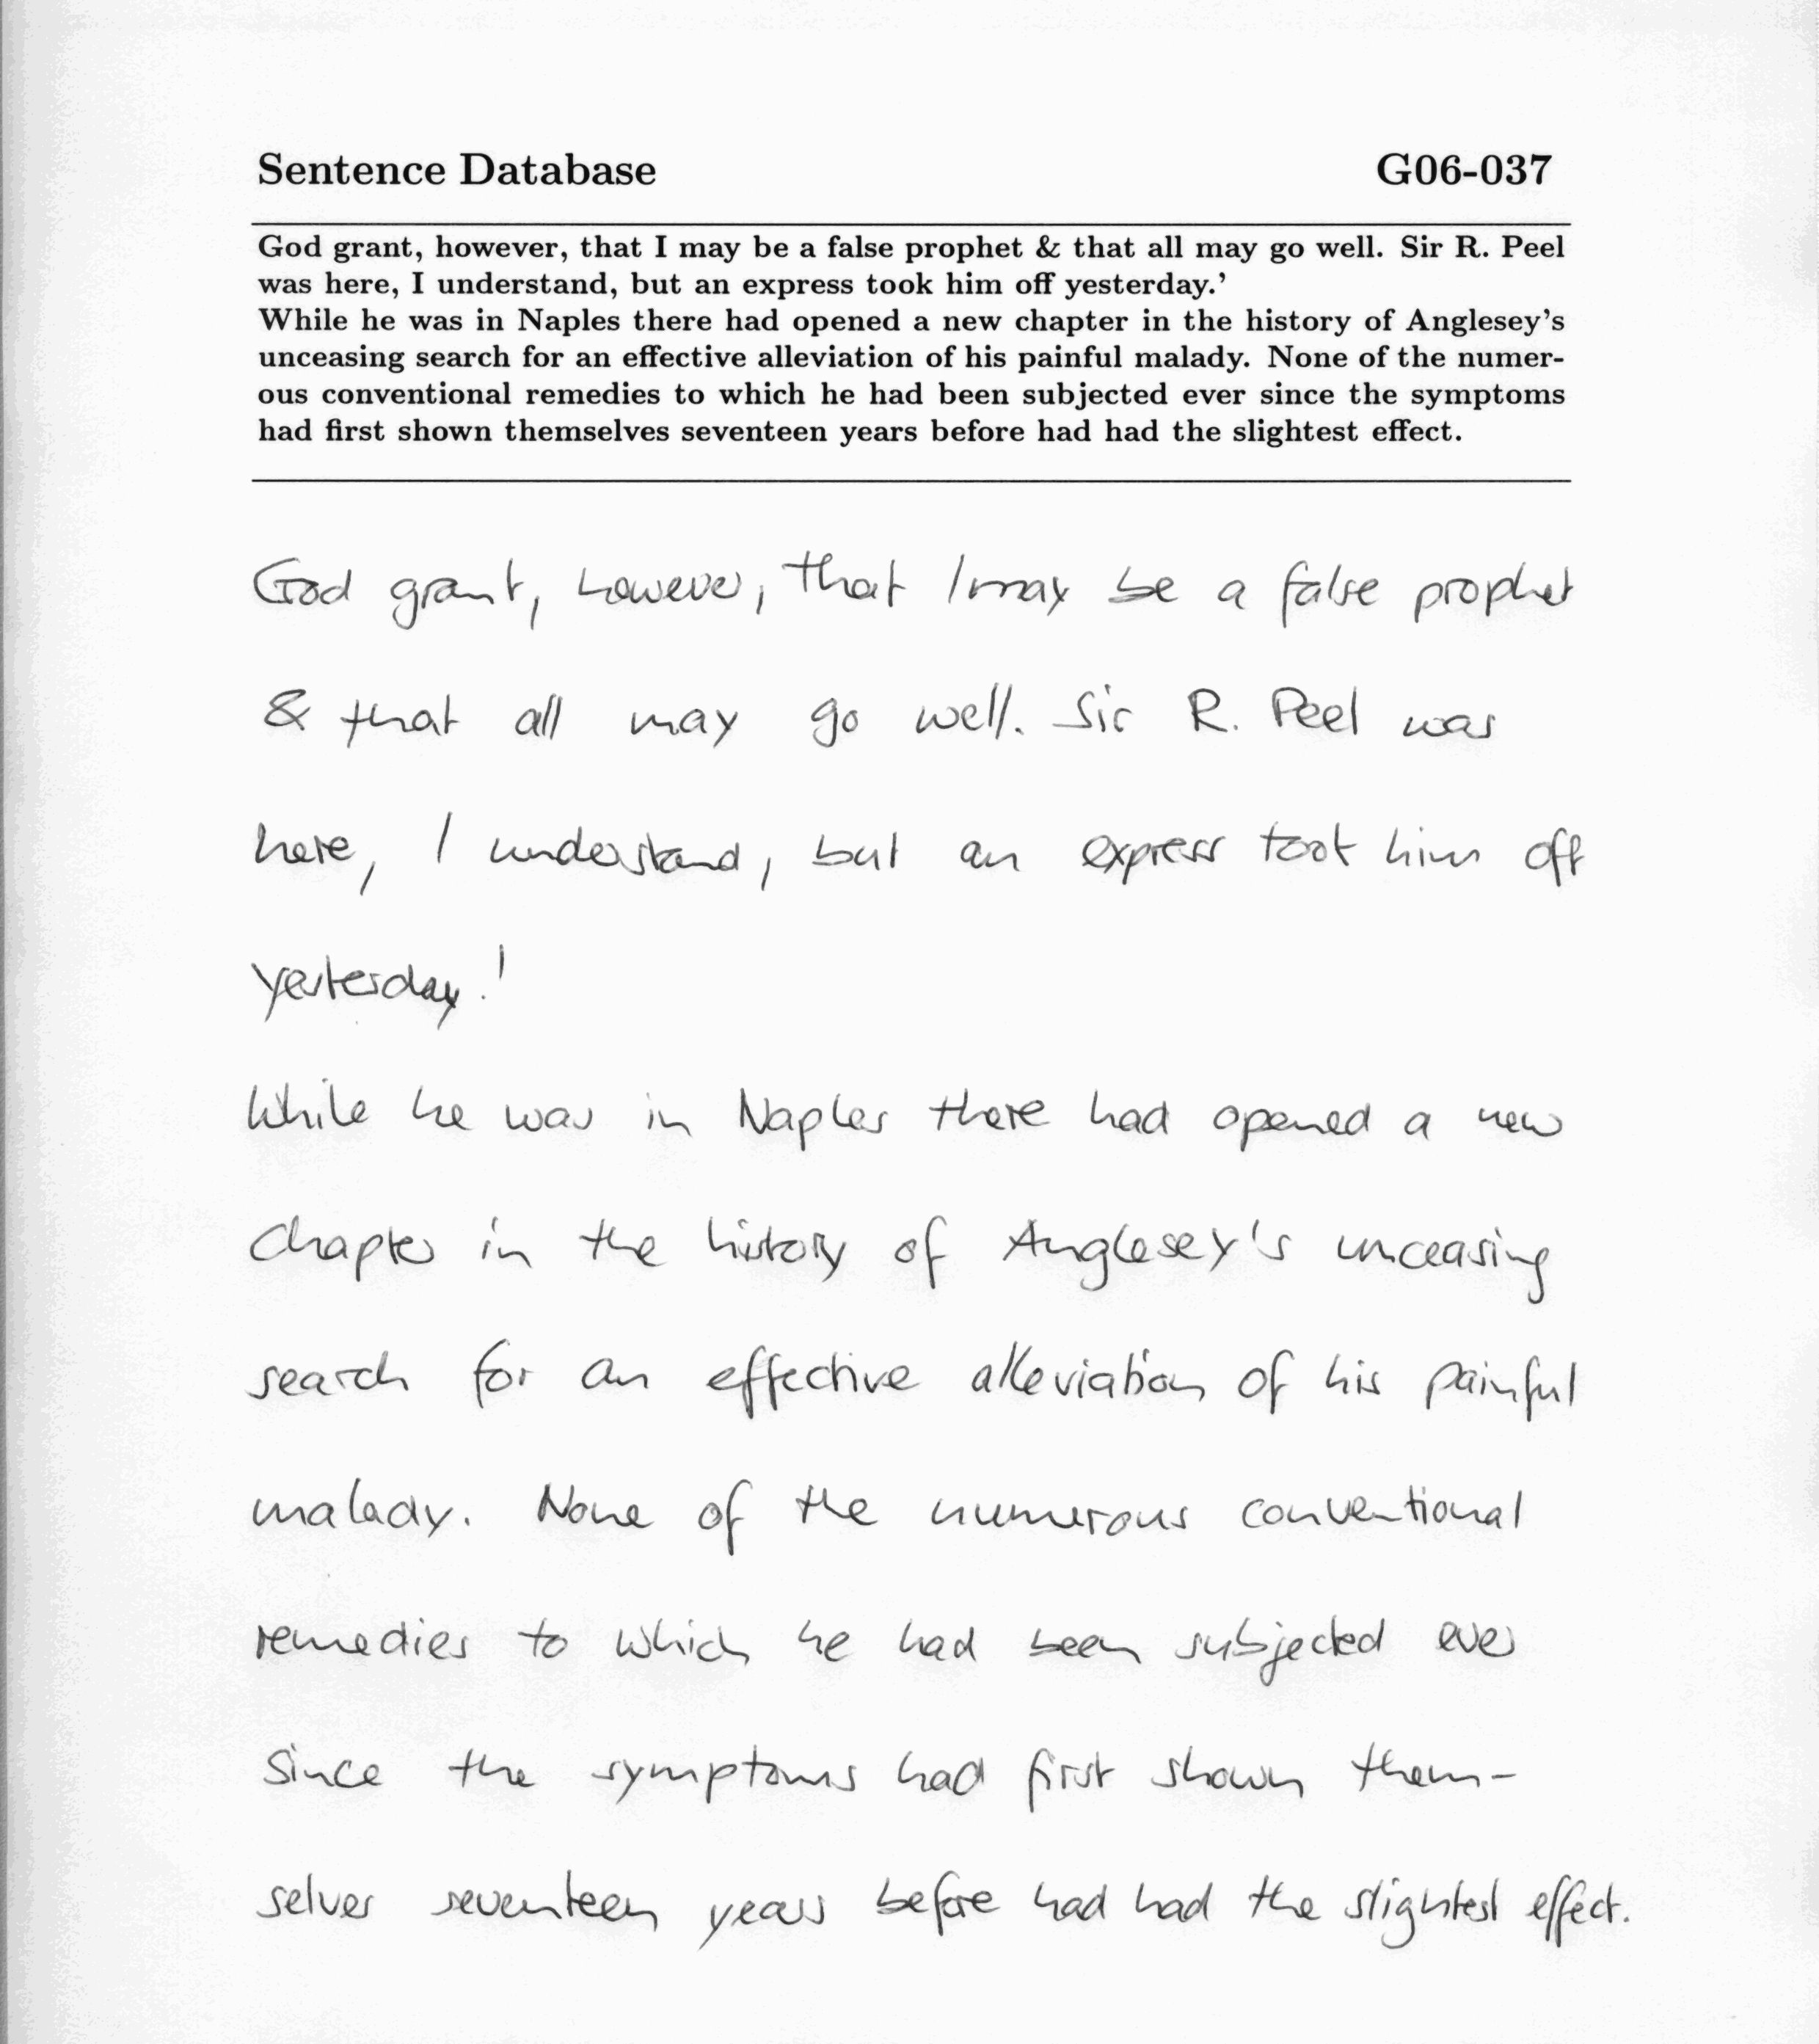 Sentence Database G06-037
God grant, however, that I may be a false prophet & that all may go well. Sir R. Peel
was here, I understand, but an express took him off yesterday.'
While he was in Naples there had opened a new chapter in the history of Anglesey's
unceasing search for an effective alleviation of his painful malady. None of the numer-
ous conventional remedies to which he had been subjected ever since the symptoms
had first shown themselves seventeen years before had had the slightest effect.
God grant, however, that I may be a false prophet
& that all may go well. Sir R. Peel was
here, I understand, but an express took him off
yesterday.'
While he was in Naples there had opened a new
chapter in the history of Anglesey's unceasing
search for an effective alleviation of his painful
malady. None of the numerous conventional
remedies to which he had been subjected ever
since the symptoms had first shown them-
selves seventeen years before had had the slightest effect.